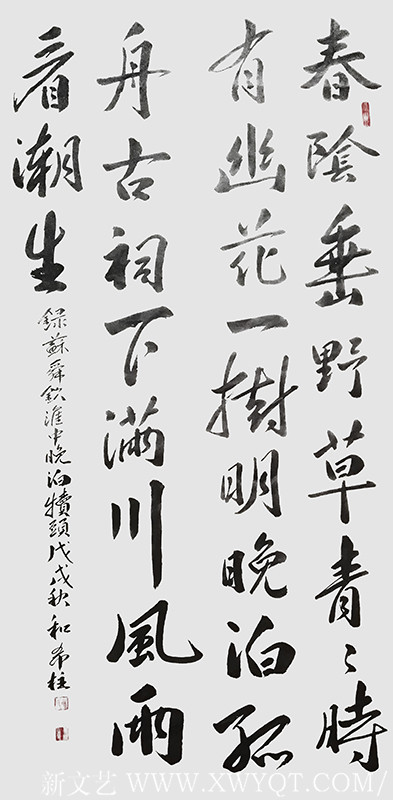 春陰垂野草青〻時
有幽花一樹明晚泊孤
舟古祠下滿川風雨
看潮生
録蘇舜欽淮中晚泊犢頭戊戌秋和希柱
新文艺 WWW.XWYQT.COM/